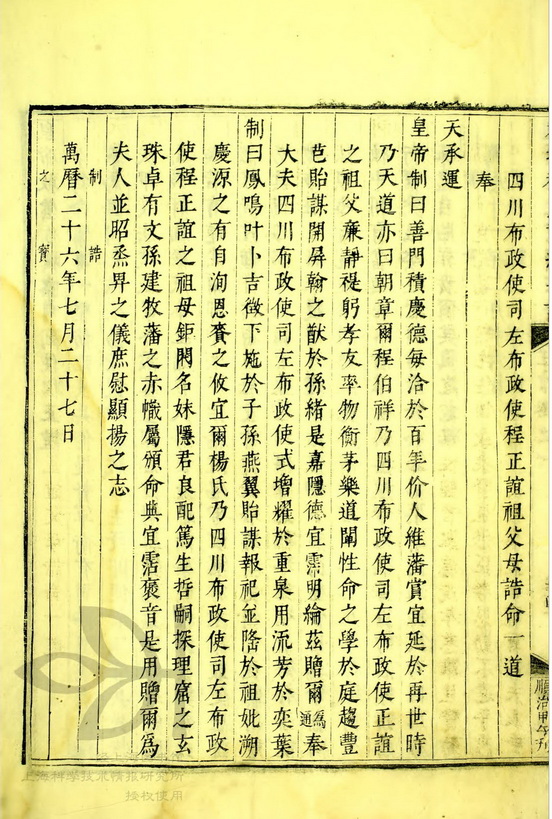 四川布政使司左布政使程正誼祖父母誥命一道
奉
天承運
皇帝制曰善門積慶德每洽於百年价人維藩賞宜延於再世時
乃天道亦曰朝章爾程伯祥乃四川布政使司左布政使正誼
之祖父廉靜禔躬孝友率物衡茅樂道闡性命之學於庭趨豐
芭貽謀開屏翰之猷於孫緒是嘉隱德宜霈明綸茲贈爾為通奉
大夫四川布政使司左布政使式增耀於重泉用流芳於奕葉
制曰鳳鳴叶卜吉徵下施於子孫燕翼貽謀報祀並隆於祖妣溯
慶源之有自洵恩賚之攸宜爾楊氏乃四川布政使司左布政
使程正誼之祖母鉅閥名姝隱君良配篤生哲嗣探理窟之玄
珠卓有文孫建牧藩之赤幟屬頒命典宜霑褒音是用贈爾為
夫人並昭烝畀之儀庶慰顯揚之志
制誥
萬曆二十六年七月二十七日
之寶
順治甲午刊
上海科学技术情报研究所
授权使用